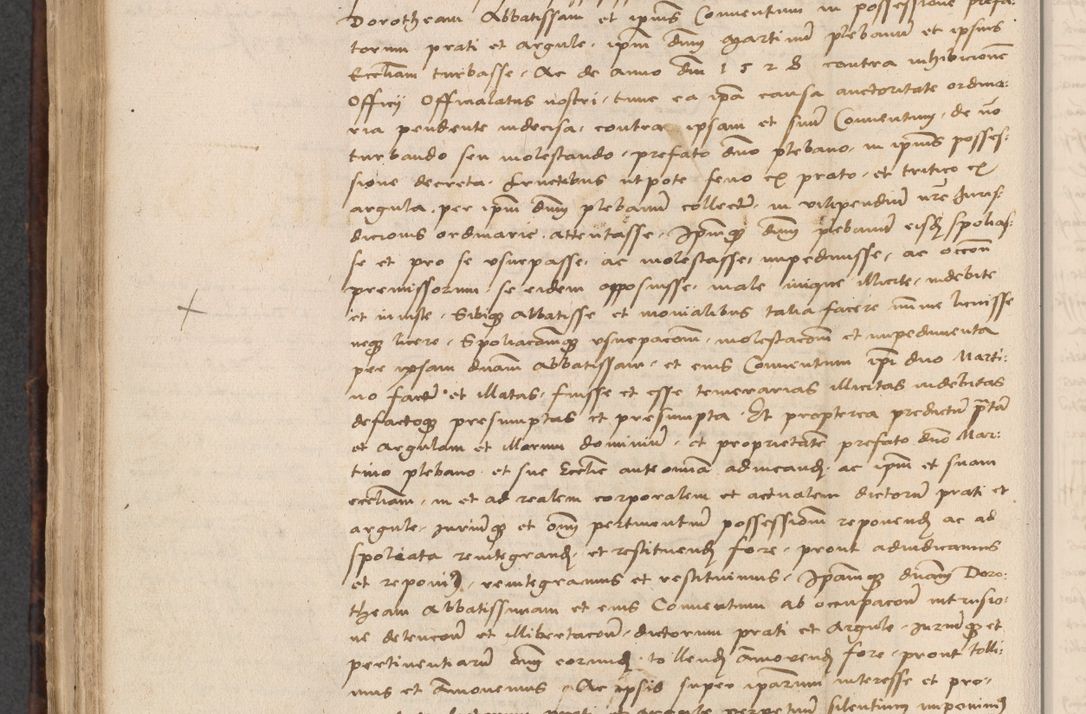 Dorotheam Abbatissam et ipius Conventum in possessione prefa:
torum prati et argule, ipm dnm Martinu plebanu et ipsius
Eccliam turbasse, Ac de anno dni 1528 contra inhibicione
Officij Officialatus nostri, tunc ea ipa causa auctoritate ordina:
ria pendente indecisa, contra ipsam et suu Conventum, de no
turbando seu molestando, prefato dno plebano, in ipius posses:
sione decreta, fructibus utpote feno ex prato, et tritico ex
argula, per ipm dnm plebanu collect, in vilipendiu nre Juris:
dicionis ordinarie attentasse, Ipmq dnm plebanu eisd spolias:
se et pro se usurpasse, ac molestasse, impedivisse, ac occon
premissorum se eidem opposuisse, male inique illicite, indebite
et iniuste, Sibiq Abbatisse et monialibus talia facere mime licuisse
neq licere, Spoliacomq usurpacom, molestacom et impedimenta
per ipsam dnam Abbatissam, et eius Conventum ipi dno Marti:
no fact et illatas, fuisse et esse temerarias illicitas indebitas
defactoq presumptas et presumpta, Et propterea predictu ptu
et argulam et illorum dominiu, et proprietate prefato dno Mar:
tino plebano et sue Ecclie ante omnia adiucand, ac ipm et suam
eccliam, in et ad realem corporalem et actualem dictoru prati et
argule, Juriuq et oim pertinentiu possessiom reponend ac ad
spoliata reintegrand, et restituend fore, prout adiudicamus
et reponim, reintegramus et restituimus, Ipamq dnam Doro:
theam Abbatissam et eius Conventum ab occupacom intrusio:
ne detencom et illibertacom, dictorum prati et Argule, Juriuq et
pertinentiaru oim eorund, tollend Amovend fore, prout tolli:
mus et Amovemus, Ac ipsis super iparum interesse et pro:
prati et argule perpetuu silentium imponim